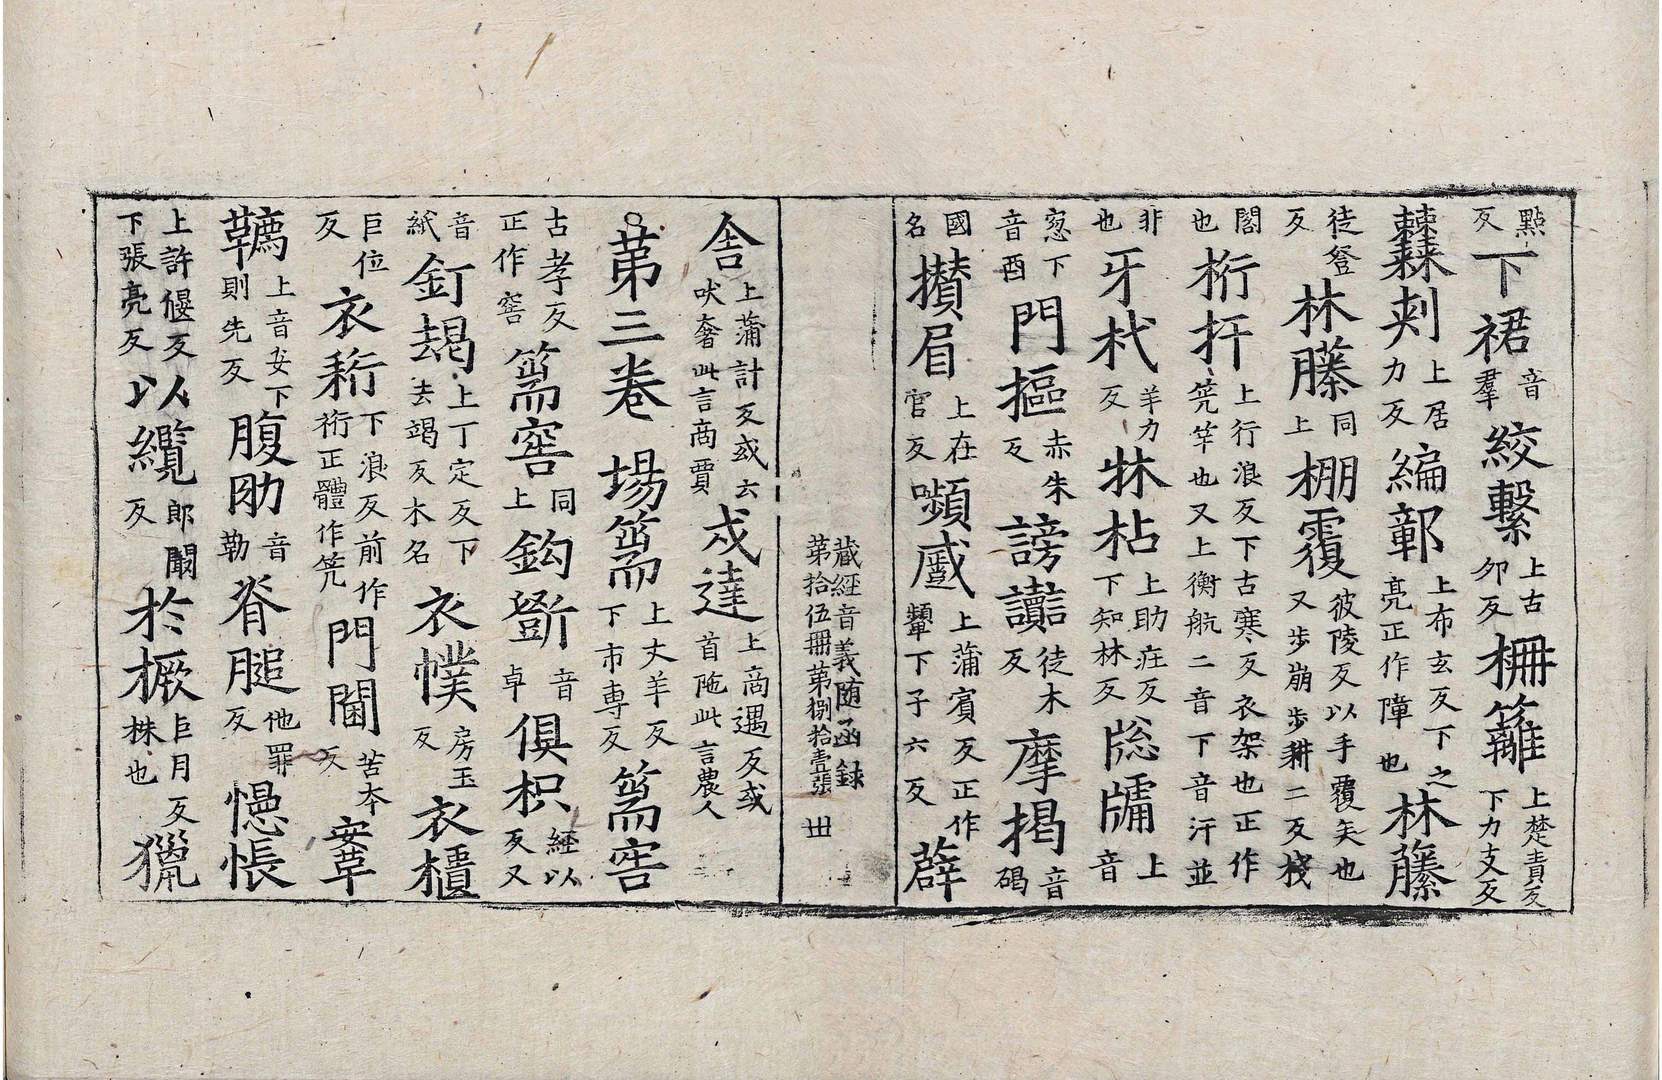 點反下裙音羣絞繫上古卯反栅籬上楚責反下力支反
棘刾上居力反編鄣上布玄反下之亮正作障也林藤
徒登反林藤同上棚覆彼陵反以手覆矢也又步崩步耕二反棧
閣也桁扞上行浪反下古寒反衣架也正作笐竿也又上衡航二音下音汗並
非也牙杙羊力反牀枮上助庄反下知林反牎牖上音
窓下音酉門摳赤朱反謗讟徒木反摩揭音碣
國名攅眉上在官反嚬蹙上蒲賓反正作顰下子六反薜
藏經音義随函録 第拾伍冊第捌拾壹張 丗
舎上蒲計反或云吠奢此言商賈戍達上商遇反或首陁此言農人
第三卷 場篅上丈羊反下市專反篅窖
古孝反正作窖篅窖同上鈎斵音卓俱枳經以反又
音紙釘朅上丁定反下去竭反木名衣幞房玉反衣櫃
巨位反衣裄下浪反前作衖正體作笐門閫苦本反安草
韉上音安下則先反腹肋音勒脊腿他罪反幰帳
上許偃反下張亮反以纜郎闞反於橛巨月反株也獵